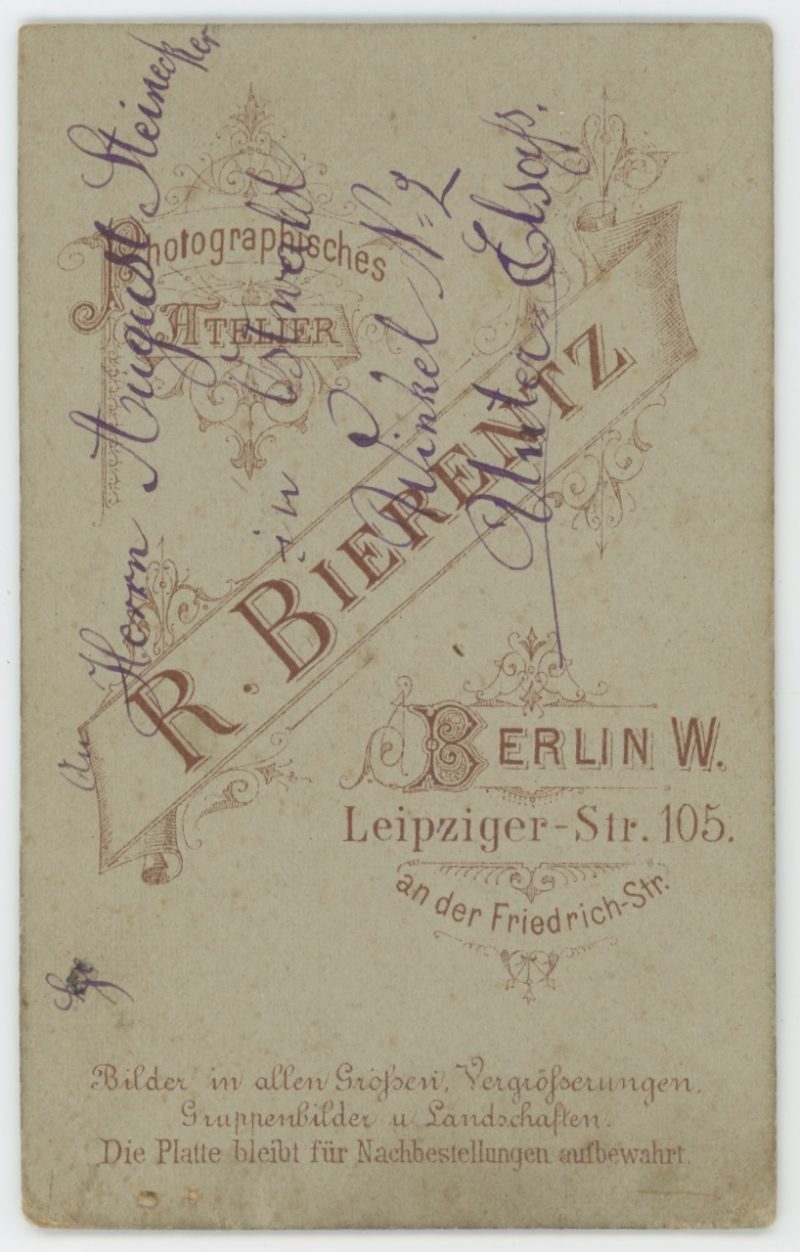 Photographisches
ATELIER
R. BIERENTZ
BERLIN W.
Leipziger-Str. 105.
an der Friedrich-Str.
Bilder in allen Größen, Vergrößerungen,
Gruppenbilder u. Landschaften.
Die Platte bleibt für Nachbestellungen aufbewahrt.
An Herrn August Steinecker
in
Winkel N= 2
Unter Elsaß.